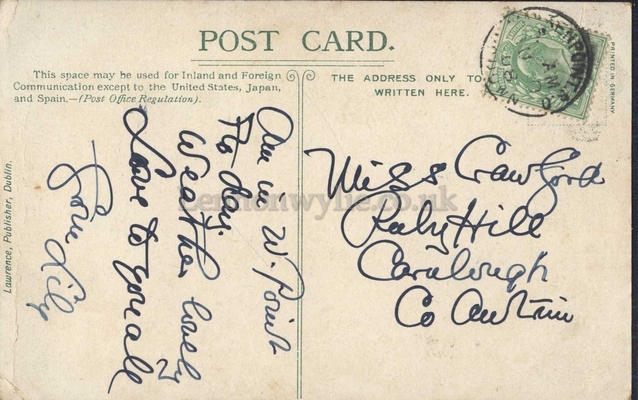 POST CARD.
This space may be used for Inland and Foreign
Communication except to the United States, Japan,
and Spain.—(Post Office Regulation).
THE ADDRESS ONLY TO
WRITTEN HERE.
PRINTED IN GERMANY
Lawrence, Publisher, Dublin.
Am in W. Point
To day.
Weather lovely
Love to you all
From Lily
Miss Crawford
Ruby Hill
Co Antrim
Lennonwylie.co.uk